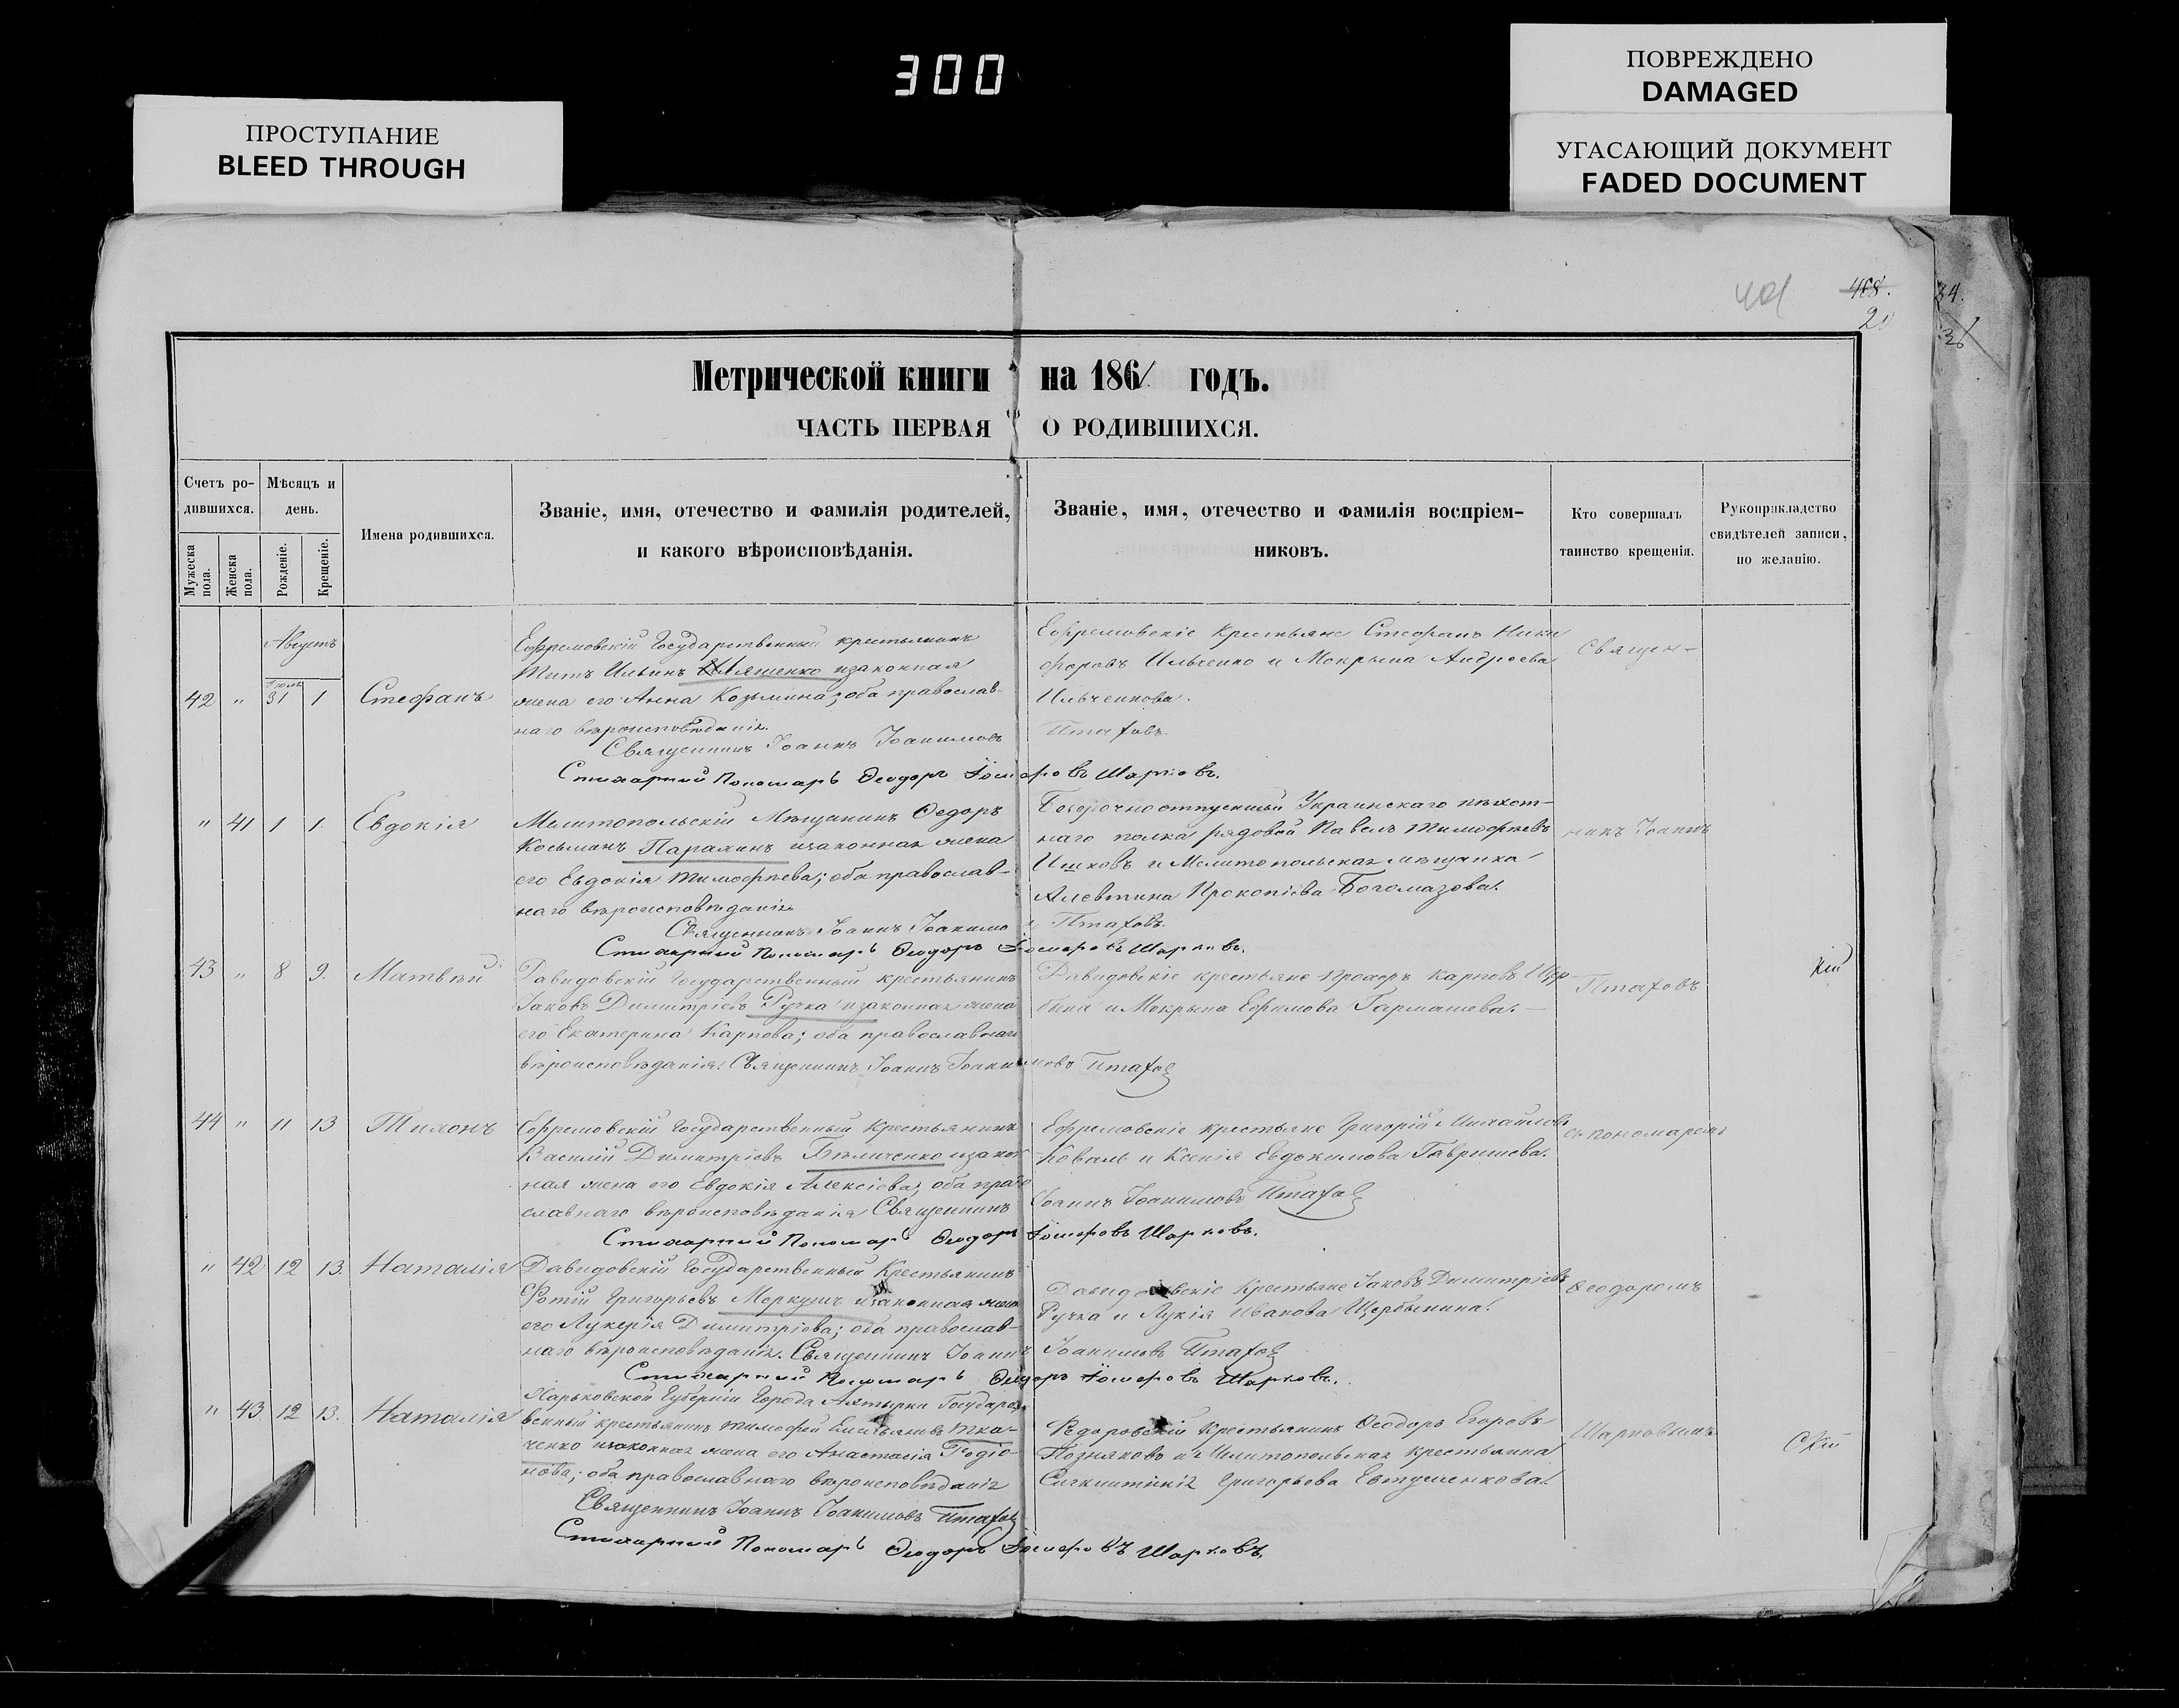 300
ПРОСТУПАНИЕ
BLEED THROUGH
ПОВРЕЖДЕНО
DAMAGED
УГАСАЮЩИЙ ДОКУМЕНТ
FADED DOCUMENT
468.
34.
Метрической книги на 1861 годъ.
ЧАСТЬ ПЕРВАЯ О РОДИВШИХСЯ.
Счетъ ро-
дившихся.
Мужеска пола.
Женска пола.
Мѣсяцъ и
день.
Рожденіе.
Крещеніе.
Имена родившихся.
Званіе, имя, отечество и фамилія родителей,
и какого вѣроисповѣданія.
Званіе, имя, отечество и фамилія воспріем-
никовъ.
Кто совершалъ
таинство крещенія.
Рукоприкладство
свидѣтелей записи,
по желанію.
Августъ
42 " 31 1 Стефанъ
Ефремовскій Государственный крестьянинъ
Титъ Ильинъ изаконная
жена его Анна Козьмина; оба православ-
наго вѣроисповѣданія.
Ефремовскіе Крестьяне Стефанъ Ники
форовъ Ильченко и Мокрына Андреева
Ильченкова.
Священникъ Іоаннъ Іоакимовъ Птаховъ.
Стихарный Пономарь Ѳеодоръ Шарковъ.
Священ-
" 41 1 1. Евдокія
Мелитопольскій Мѣщанинъ Ѳедоръ
Косьминъ Парахинъ изаконная жена
его Евдокія Тимофѣева; оба православ-
наго вѣроисповѣданія.
Безсрочноотпускный Украинскаго пѣхот-
наго полка рядовой Павелъ Тимофѣевъ
и Мелитопольская мѣщанка
Алевтина Прокопіева Богомазова.
Священникъ Іоаннъ Іоакимовъ Птаховъ.
Стихарный Пономарь Ѳеодоръ Шарковъ.
никъ Іоаннъ
43 " 8 9. Матвѣй
Давидовскій Государственный крестьянинъ
Іаковъ Димитріевъ Ручка изаконная жена
его Екатерина Карпова; оба православнаго
вѣроисповѣданія. Священникъ Іоаннъ Іоакимовъ Птаховъ
Давидовскіе крестьяне Прохоръ Карповъ Щер-
бина и Мокрына Ефимова Гармашева.
Птаховъ
44 " 11 13 Тихонъ
Ефремовскій Государственный Крестьянинъ
Василій Димитріевъ Бѣличенко изакон
ная жена его Евдокія Алексіева; оба право
славнаго вѣроисповѣданія Священникъ Іоаннъ Іоакимовъ Птаховъ
Ефремовскіе крестьяне Григорій Михайловъ
Коваль и Ксенія Евдокимова Гавришева.
Стихарный Пономарь Ѳеодоръ Шарковъ.
съ пономаремъ
" 42 12 13. Наталія
Давидовскій Государственный Крестьянинъ
Фотій Григорьевъ Меркушъ изаконная жена
его Лукерія Димитріева; оба православ-
наго вѣроисповѣданія. Священникъ Іоаннъ Іоакимовъ Птаховъ
Давидовскіе Крестьяне Іаковъ Димитріевъ
Ручка и Лукія Иванова Щербынина.
Стихарный Пономарь Ѳеодоръ Шарковъ.
Ѳеодоромъ
" 43 12 13. Наталія
Харьковской Губерніи Города Ахтырки Государст
венный крестьянинъ Тимофей Емельяновъ Тка-
ченко изаконная жена его Анастасія Родіо-
нова; оба православнаго вѣроисповѣданія
Ѳедоровскій Крестьянинъ Ѳеодоръ Егоровъ
Позняковъ и Мелитопольская крестьянка
Сигклитикія Григорьева Евтушенкова.
Священникъ Іоаннъ Іоакимовъ Птаховъ
Стихарный Пономарь Ѳеодоръ Шарковъ.
Шарковымъ